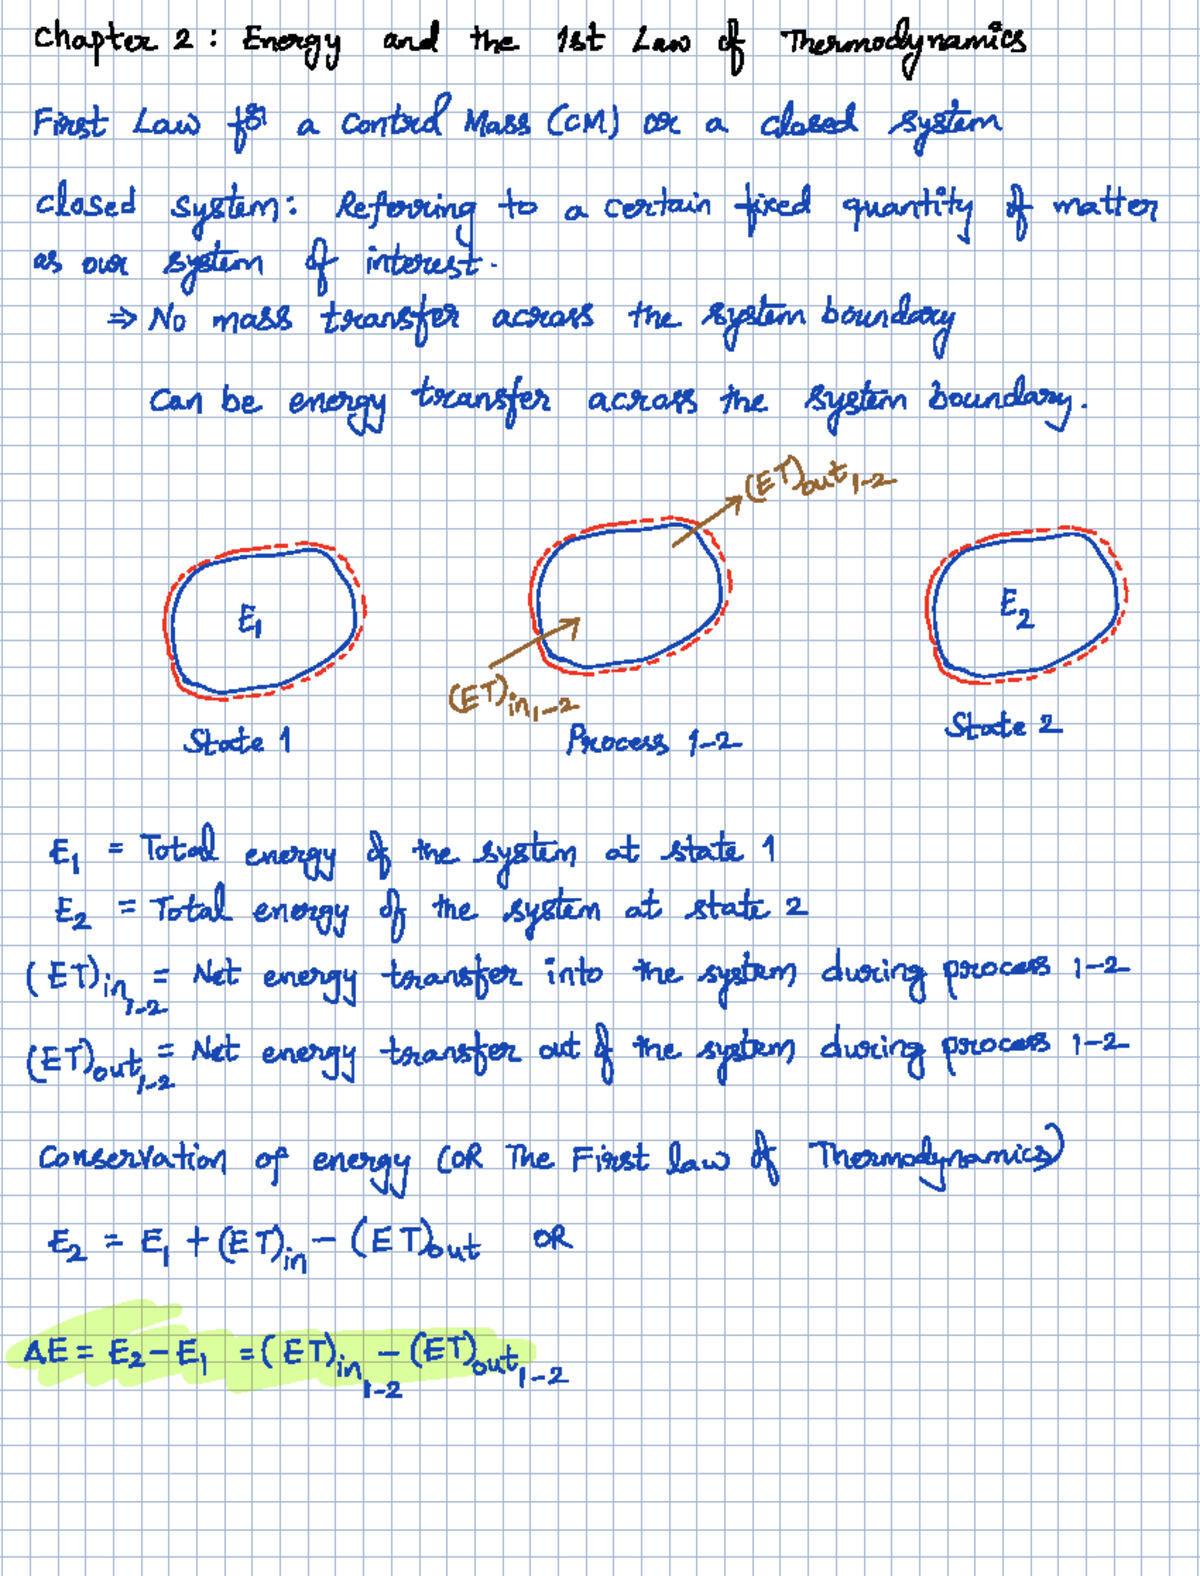 Chapter 2 : Energy and the 1st Law of Thermodynamics
First Law for a Control Mass (CM) or a closed system
closed system: Referring to a certain fixed quantity of matter
as our system of interest.
⇒ No mass transfer across the system boundary
Can be energy transfer across the system boundary.
(ET)out1-2
E1
E2
(ET)in1-2
State 1
Process 1-2
State 2
E1 = Total energy of the system at state 1
E2 = Total energy of the system at state 2
(ET)in1-2 = Net energy transfer into the system during process 1-2
(ET)out1-2 = Net energy transfer out of the system during process 1-2
Conservation of energy (OR The First law of Thermodynamics)
E2 = E1 + (ET)in - (ET)out OR
ΔE = E2 - E1 = (ET)in1-2 - (ET)out1-2